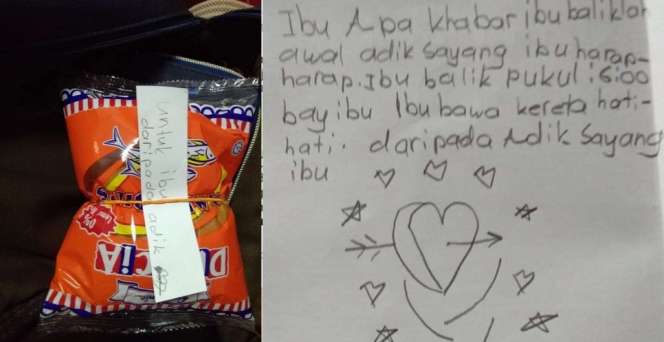 untuk ibu
daripada adik
Ibu Apa khabar ibu baliklah
awal adik sayang ibu harap-
harap. Ibu balik pukul :6:00
bay ibu Ibu bawa kereta hati-
hati. daripada Adik Sayang
ibu
0%